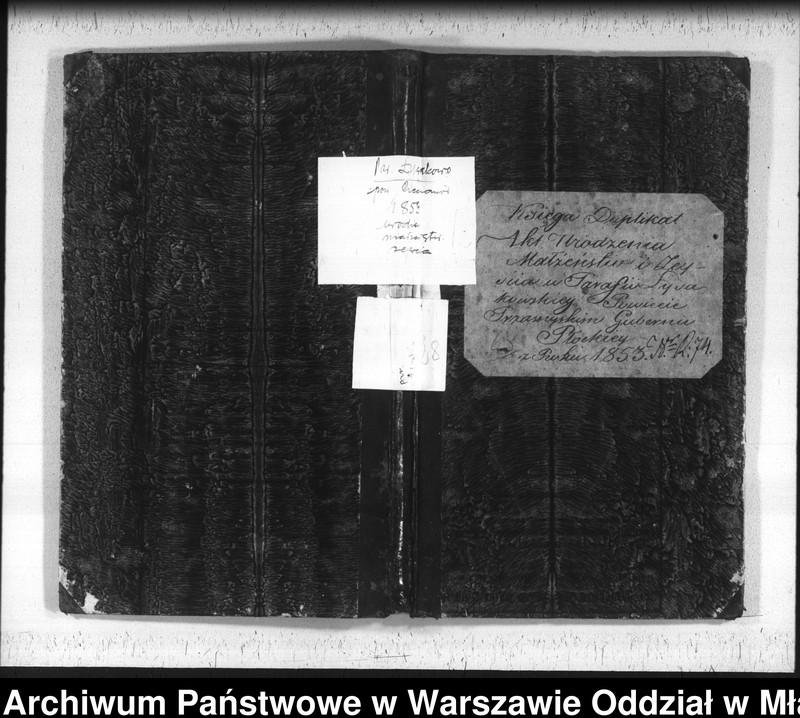 Par. Dzekowo
pow. Ciechanów
1853
urodz.
małżeństw.
zejścia
Księga Duplikat
Akt Urodzenia
Małżeństw i Zey-
ścia w Parafii
Powiecie
Przasnyskim Gubernii
Płockiey
z Roku 1853. 74.
Archiwum Państwowe w Warszawie Oddział w Mła